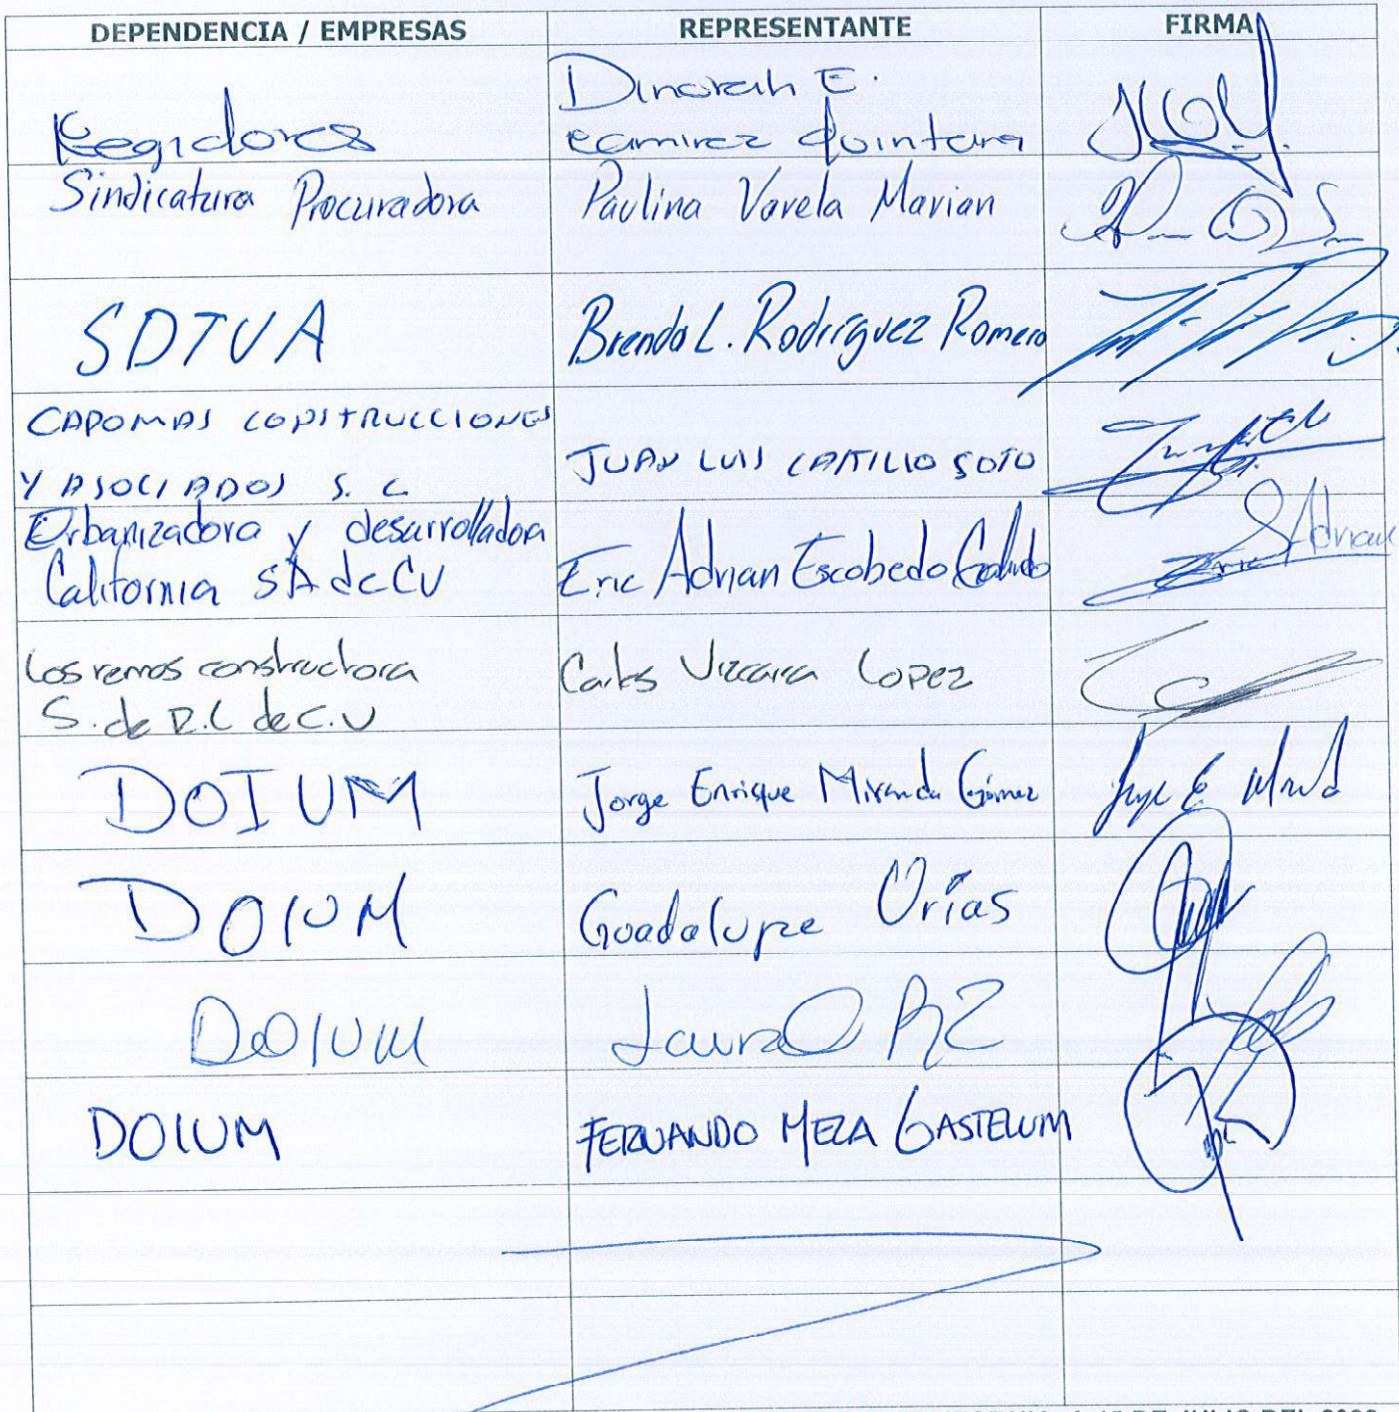 DEPENDENCIA / EMPRESAS REPRESENTANTE FIRMA
Dinorah E.
Regidores ramirez quintana
Sindicatura Procuradora Paulina Varela Marian
SDTUA Brenda L. Rodríguez Romero
CAPOMAS CONSTRUCCIONES
Y ASOCIADOS S. C. JUAN LUIS CASTILLO SOTO
Urbanizadora y desarrolladora
California SA de CV Eric Adrian Escobedo Galindo Eric Adrian
Los remos constructora Carlos Vizcarra Lopez
S. de R.L de C.V
DOIUM Jorge Enrique Miranda Gómez Jorge E.
DOIUM Guadalupe Urías
DOIUM Laura
DOIUM FERNANDO MEZA GASTELUM
DE JULIO DEL